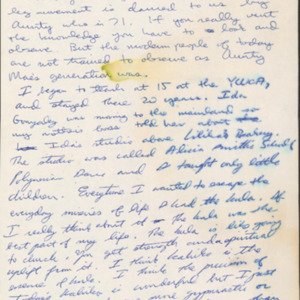 leg movement is danced to us by
Aunty who in 71. If you really want
the knowledge you have to look and
observe. But the modern people of today
are not trained to observe as Aunty
Maes generation was.
I began to teach at 15 at the YWCA,
and stayed there 20 years. Ida
Gonzales was moving to the mainland so
my mothers boss told her about
Ida's studio above Liliha's Bakery.
The studio was called Alicia Smiths School
Polynesian Dance and I taught only little
children. Everytime I wanted to escape the
everyday miseries of life I had the hula. If
I really think about it the hula was the
best part of my life. The hula is like going
to church. You get strength and a spiritual
uplift from it. I think kahiko is The
I think the precision of
kahiko is wonderful but I just
more gymnastic or